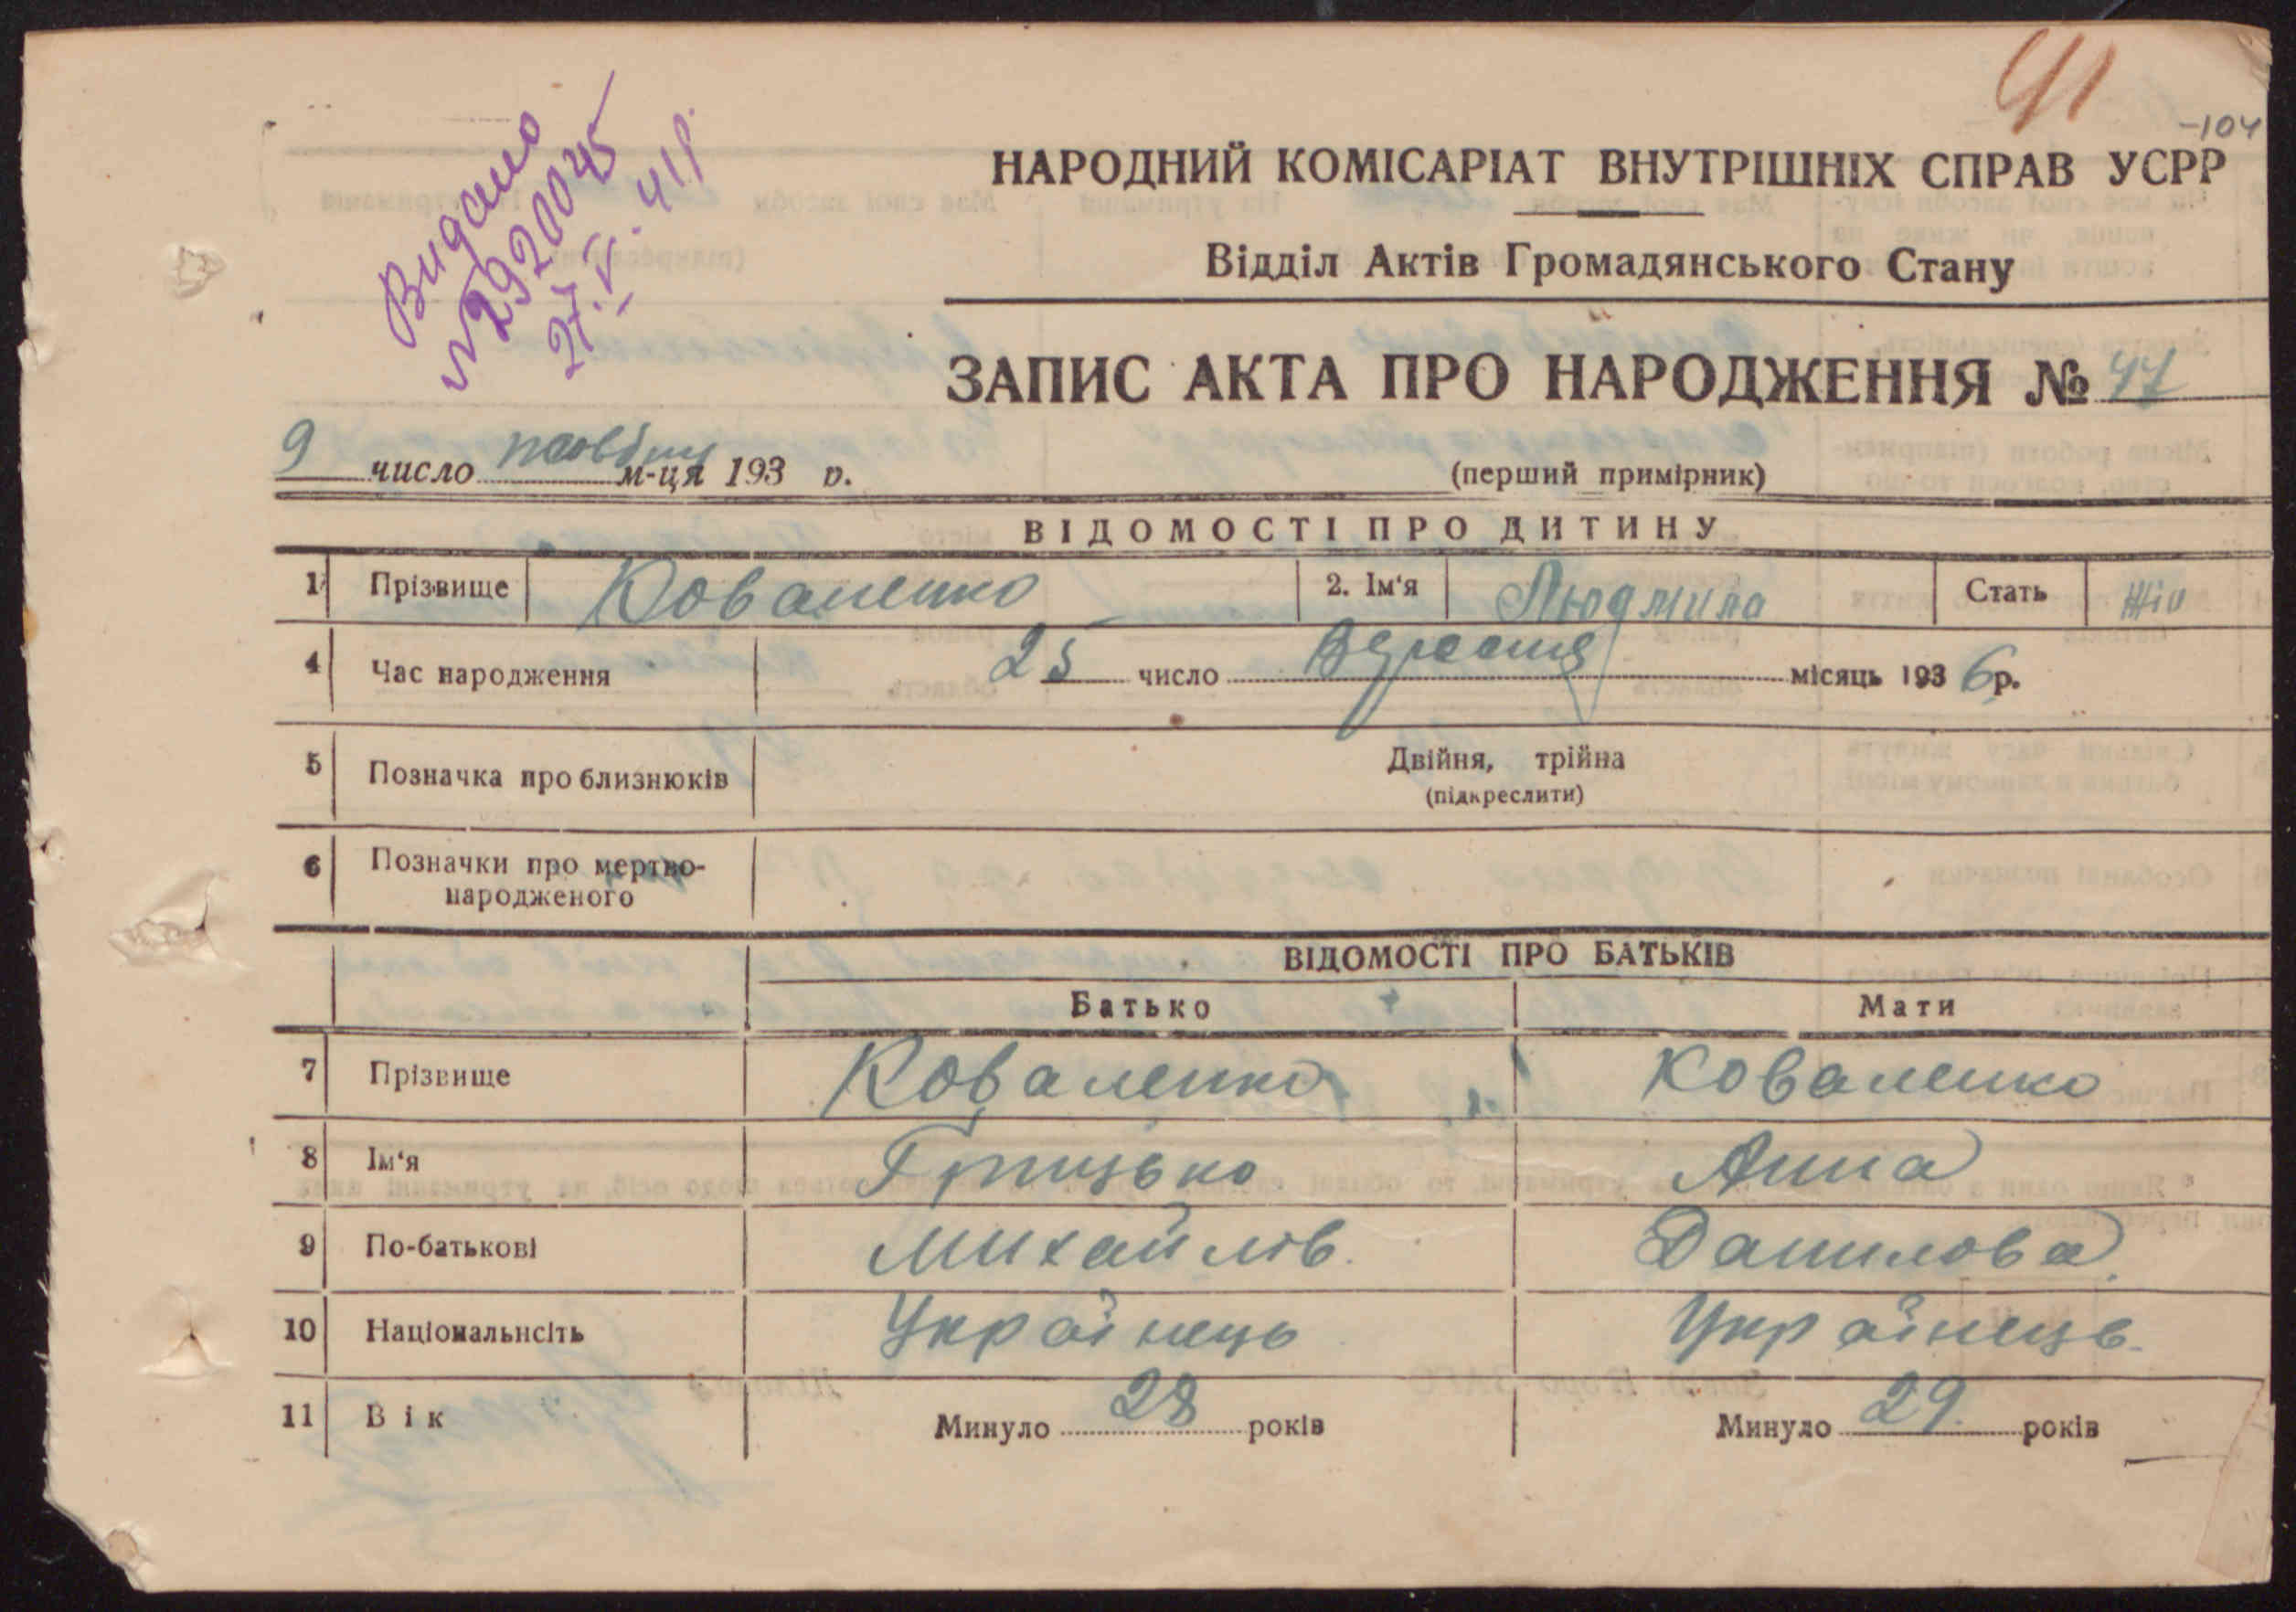 41
-104
Видано
№2920045
27.V.41р.
НАРОДНИЙ КОМІСАРІАТ ВНУТРІШНІХ СПРАВ УСРР
Відділ Актів Громадянського Стану
ЗАПИС АКТА ПРО НАРОДЖЕННЯ № 47
9 число жовтня м-ця 193 р.
(перший примірник)
ВІДОМОСТІ ПРО ДИТИНУ
1 Прізвище Коваленко 2. Ім'я Людмила Стать жін
4 Час народження 25 число Вересня місяць 1936 р.
5 Позначка про близнюків Двійня, трійна
(підкреслити)
6 Позначки про мертво-
народженого
ВІДОМОСТІ ПРО БАТЬКІВ
Батько Мати
7 Прізвище Коваленко Коваленко
8 Ім'я Грицько Анна
9 По-батькові Михайлів. Данилова
10 Національнсіть Українець Українець
11 Вік Минуло 28 років Минуло 29 років